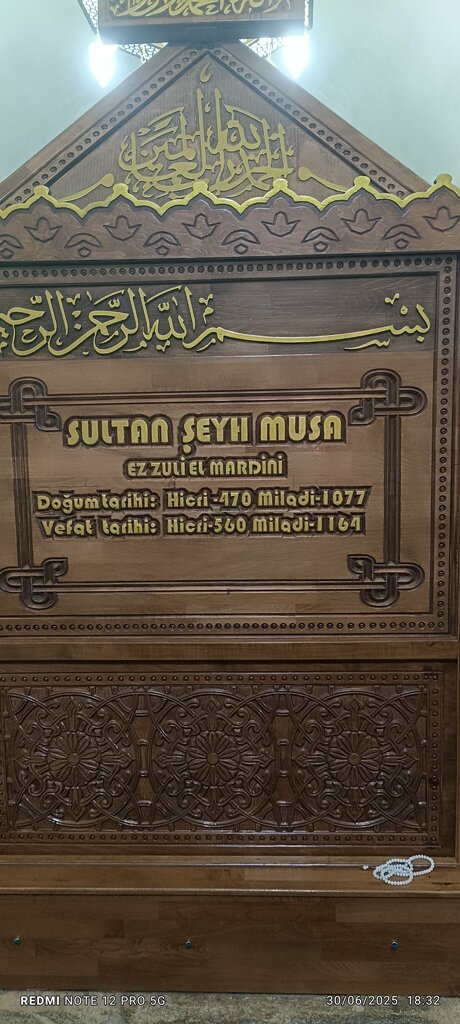 الحمد لله رب العالمين
بسم الله الرحمن الرحيم
SULTAN ŞEYH MUSA
EZ ZULİ EL MARDİNİ
Doğum tarihi: Hicri -470 Miladi-1077
Vefat tarihi: Hicri-560 Miladi-1164
REDMI NOTE 12 PRO 5G
30/06/2025 18:32